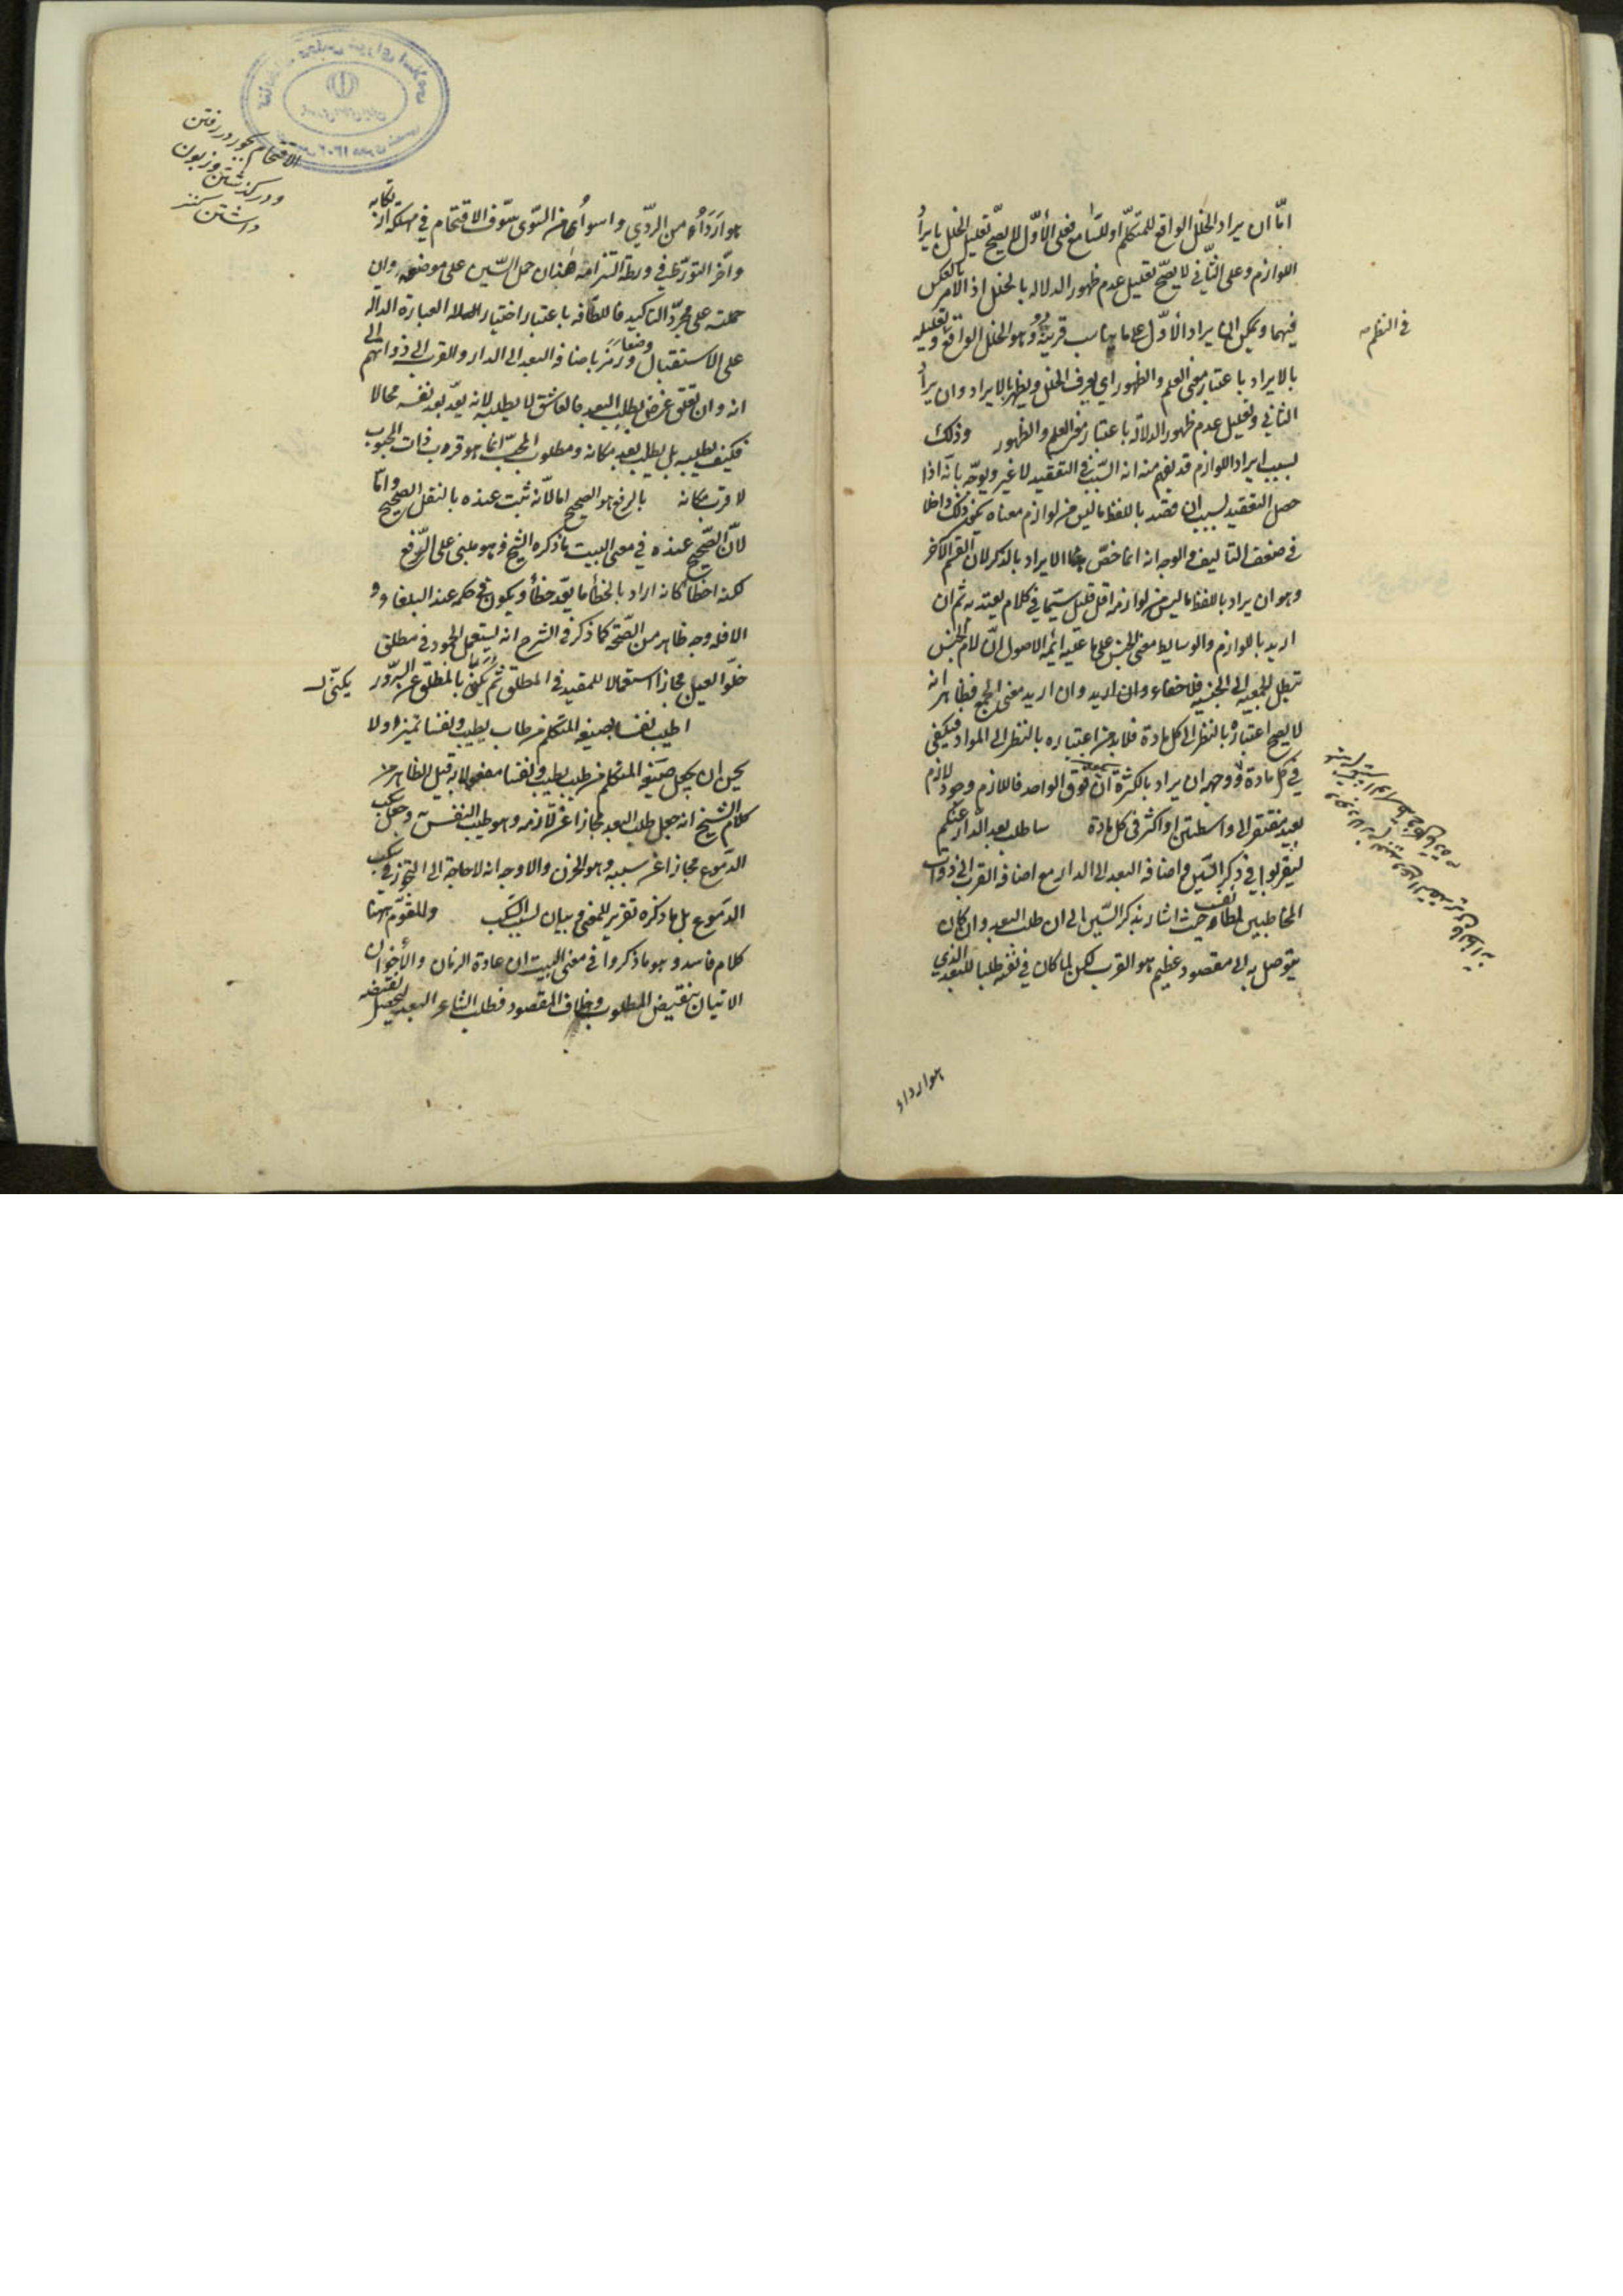 امّا ان يراد الخلل الواقع للمتكلّم او للسّامع فعلى الأوّل لا يصّح تعليل الخلل بايراد
اللوازم وعلى الثّاني لا يصّح تعليل عدم ظهور الدلاله بالخلل اذ الامر بالعكس
فيهما ويمكن ان يراد الأوّل على ما يناسب قرينة وهو الخلل الواقع وتعليله
بالايراد باعتبار معنى العلم والظهور اي يعرف الخلل ويظهر بالايراد وان يراد
الثاني وتعليل عدم ظهور الدلالة باعتبار معنى العلم والظهور وذلك
بسبب ايراد اللوازم قد يفهم منه انه السّبب في التعقيد لا غير ويوجّه بانّه اذا
حصل التعقيد بسبب ان قصد باللفظ ما ليس من لوازم معناه يكون ذلك داخلا
في ضعف التاليف والوجه انه انما خصّ هذا الايراد بالذكر لان القسم الآخر
وهو ان يراد باللفظ ما ليس من لوازمه اقل قليل سيّما في كلام يعتد به ثم ان
اريد باللوازم والوسايط معنى الجنس على ما عليه ائمة الاصول انّ لام الجنس
تبطل الجمعيه الى الجنسيه فلا خفاء وان اريد معنى الجمع فظاهر انه
لا يصح اعتباره بالنظر الى كل مادة فلا بد من اعتباره بالنظر الى المواد فيكفي
في كل مادة ووجهه ان يراد بالكثرة ما فوق الواحد فاللازم وجود لازم
بعيد مفتقر الى واسطتين او اكثر في كل مادة ساطلب بعد الدار عنكم
لتقربوا في ذكر السّين واضافه البعد الى الدار مع اضافه القرب الى ذوات
المخاطبين لطائف حيث اشار بذكر السّين الى ان طلب البعد وان كان
يتوصل به الى مقصود عظيم هو القرب لكن لما كان في نفسه طلبا للبعد الذي
هو ارداء
في النظم
هو اَردَأُ من الرّدّي واسوأُ من السّوى سوّف الاقتحام في مهلكة ارتكابه
واخّر التورّط في ورطة التزامه هذا ان حمل السّين على موضوعه وان
حملته على مجرّد التاكيد فاللطافه باعتبار اختيار العبارة الداله
على الاستقبال وضعا ورمز باضافه البعد الى الدار والقرب الى ذواتهم الى
انه وان تعلّق غرض بطلب البعد فالعاشق لا يطلبه لانه يعدّ بعد نفسه محالا
فكيف يطلبه بل يطلب بعد مكانه ومطلوب المحبّ انما هو قربه بذات المحبوب
لا قرب مكانه بالرفع هو الصحيح امّا لانّه ثبت عنده بالنقل الصحيح وامّا
لانّ الصّحيح عنده في معنى البيت ما ذكره الشيخ وهو مبنى على الرّفع
لكنه اخطأ كانه اراد بالخطأ ما يعدّ خطأ ويكون في حكمه عند البلغاء و
الا فله وجه ظاهر من الصّحّة كما ذكر في الشرح انه يستعمل الجمود في مطلق
خلوّ العين مجازا استعمالا للمقيد في المطلق ثم يكنّى بالمطلق عن السّرور
يكنّى به
اطيب نفسا بصيغه المتكلم من طاب يطيب ونفسا تميز او لا
يحسن ان يجعل صيغه المتكلم من طلب يطلب ونفسا مفعولا به قيل الظاهر من
كلام الشيخ انه جعل طلب البعد مجازا عن لازمه وهو طيب النفس وجعل سكب
الدموع مجازا عن سببه وهو الحزن والاوجه انه لا حاجة الى التجوّز في سكب
الدموع بل ما ذكره تقرير للمعنى وبيان لسبب السّكب وللقوم ههنا
كلام فاسد وهو ما ذكروا في معنى البيت ان عادة الزمان والأخوان
الاتيان بنقيض المطلوب وخلاف المقصود فطلب الشاعر البعد ليحصل نقيضه
الاقتحام بخود در رفتن
ودر گذشتن وزبون
داشتن كنز